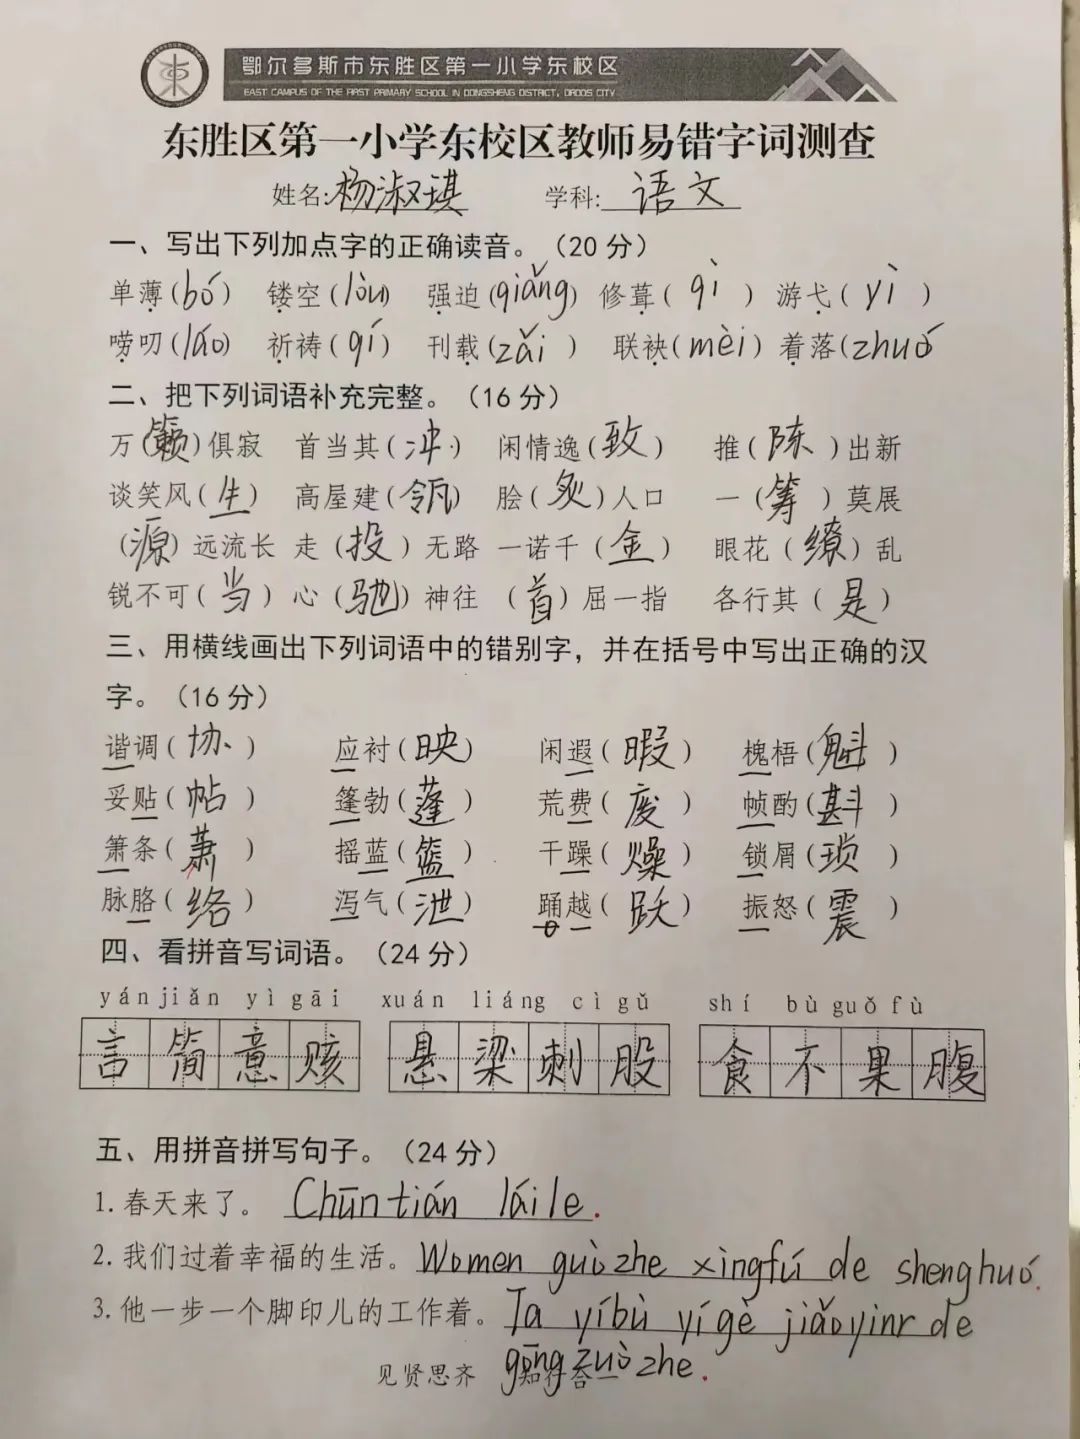 鄂尔多斯市东胜区第一小学东校区
EAST CAMPUS OF THE FIRST PRIMARY SCHOOL IN DONGSHENG DISTRICT, ORDOS CITY
东胜区第一小学东校区教师易错字词测查
姓名:杨淑琪 学科:语文
一、写出下列加点字的正确读音。（20 分）
单薄(bó) 镂空(lòu) 强迫(qiǎng) 修葺(qì) 游弋(yì)
唠叨(láo) 祈祷(qí) 刊载(zǎi) 联袂(mèi) 着落(zhuó
二、把下列词语补充完整。（16 分）
万(籁)俱寂 首当其(冲) 闲情逸(致) 推(陈)出新
谈笑风(生) 高屋建(瓴) 脍(炙)人口 一(筹)莫展
(源)远流长 走(投)无路 一诺千(金) 眼花(缭)乱
锐不可(当) 心(驰)神往 (首)屈一指 各行其(是)
三、用横线画出下列词语中的错别字，并在括号中写出正确的汉
字。（16 分）
谐调(协) 应衬(映) 闲遐(暇) 槐梧(魁)
妥贴(帖) 篷勃(蓬) 荒费(废) 帧酌(斟)
箫条(萧) 摇蓝(篮) 干躁(燥) 锁屑(琐)
脉胳(络) 泻气(泄) 踊越(跃) 振怒(震)
四、看拼音写词语。（24 分）
yán jiǎn yì gāi xuán liáng cì gǔ shí bù guǒ fù
言简意赅 悬梁刺股 食不果腹
五、用拼音拼写句子。（24 分）
1. 春天来了。 Chūn tián lái le.
2. 我们过着幸福的生活。 Women guòzhe xìngfú de shenghuó.
3. 他一步一个脚印儿的工作着。 Ta yíbù yígè jiǎoyinr de
gōngzuòzhe.
见贤思齐 知行合一